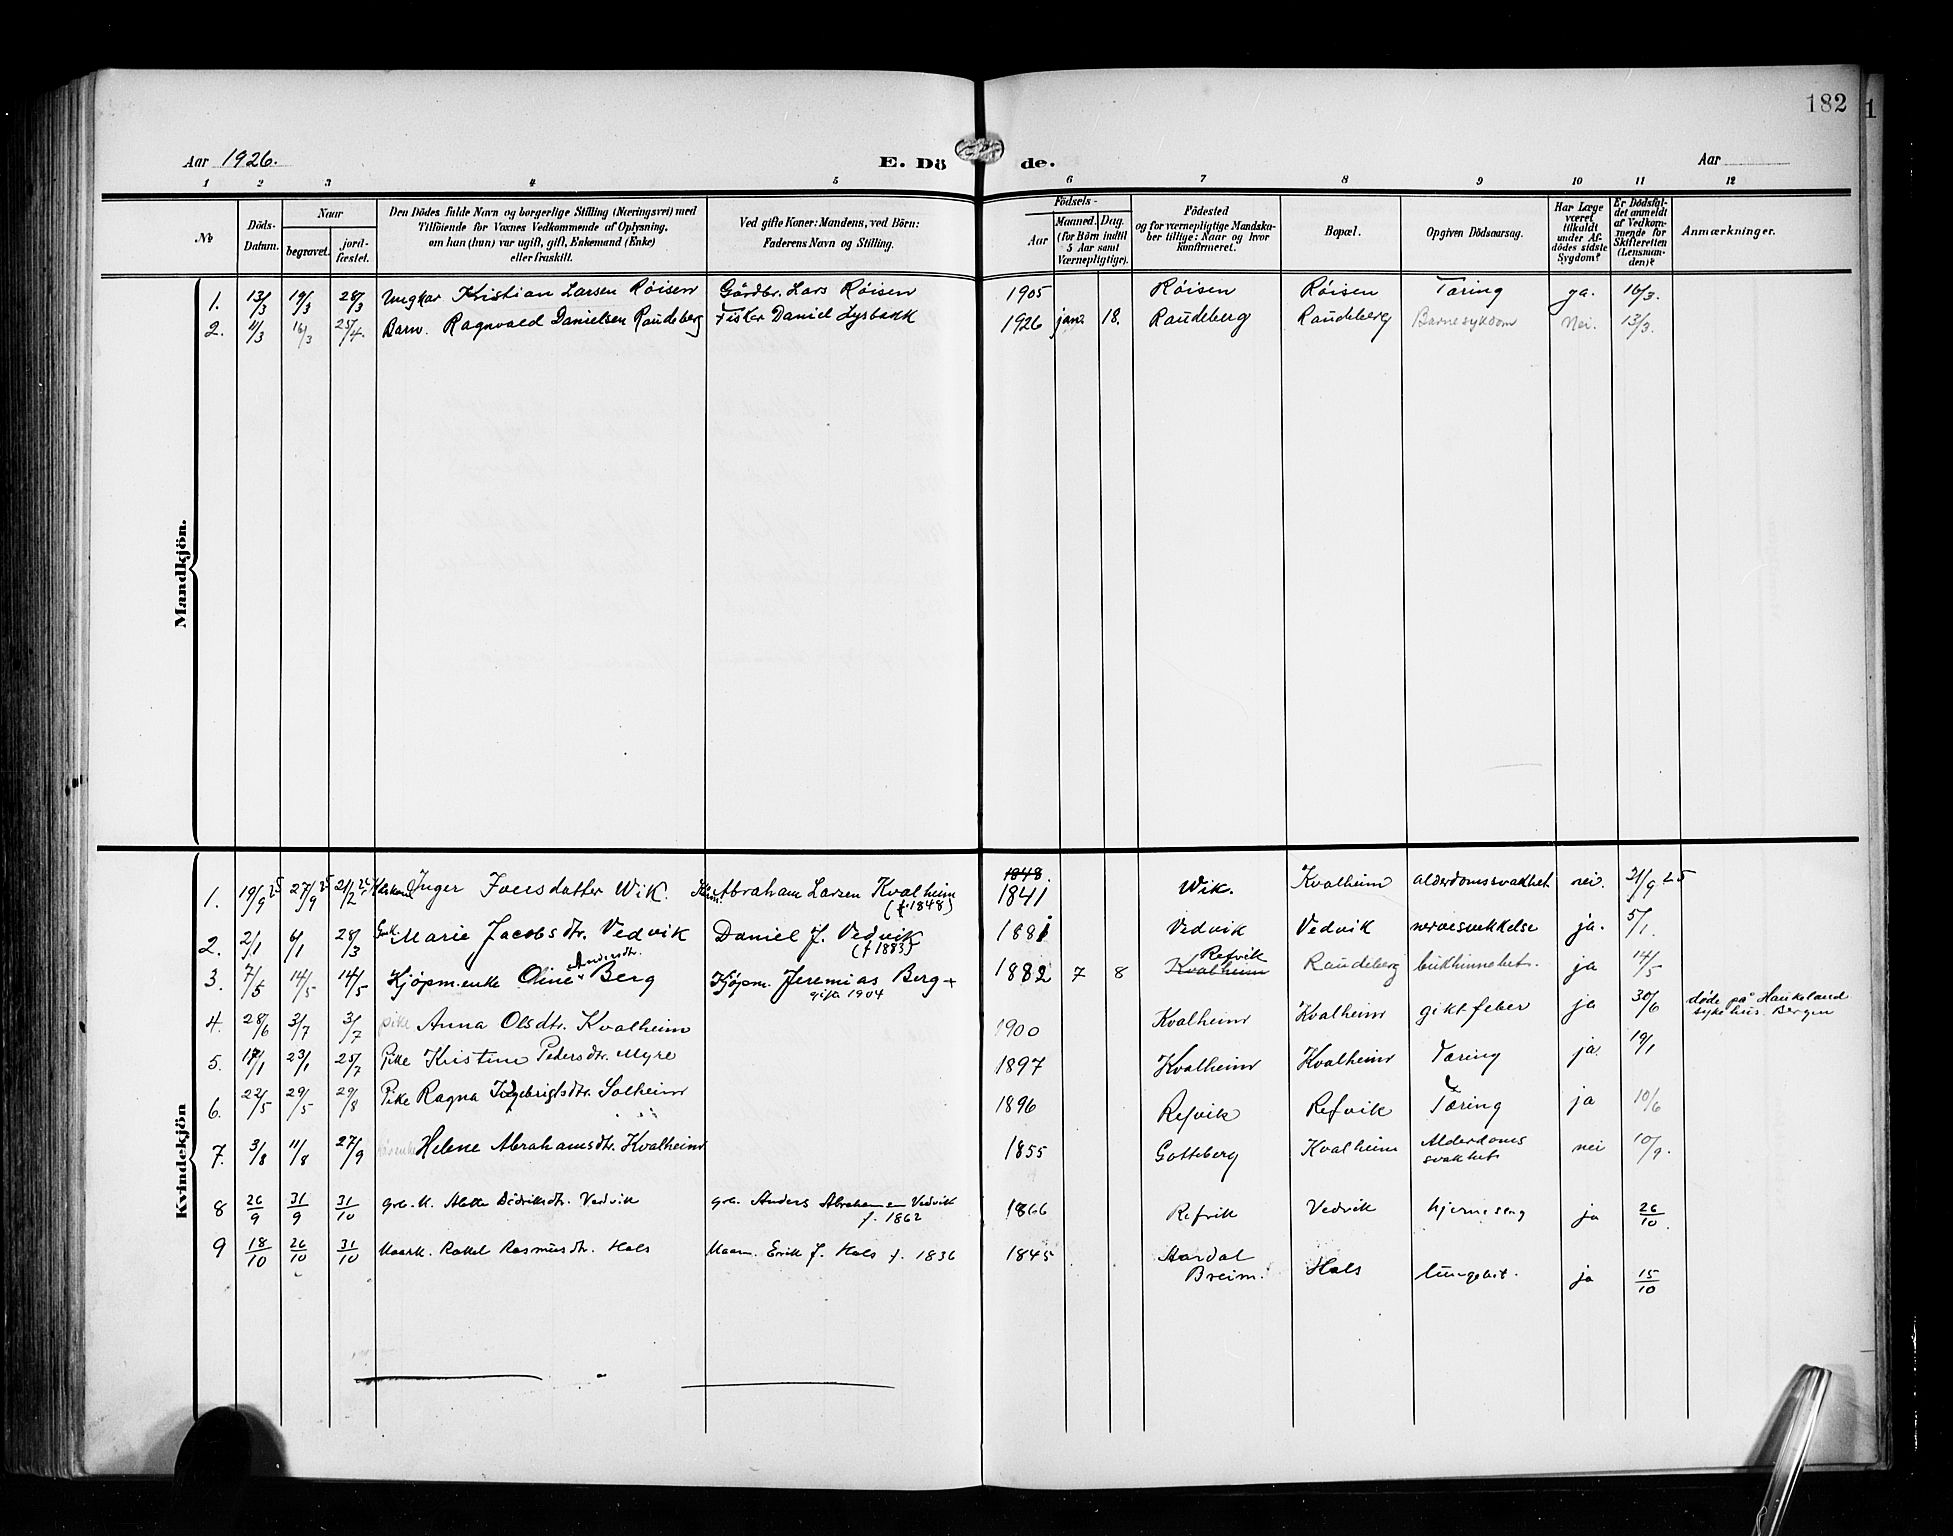 182
Aar 1926.
E. Dö de.
Aar
1 2 3 4 5 6 7 8 9 10 11 12
No
Döds-Datum.
Naar
begravet.
jord-fæstet.
Den Dödes fulde Navn og borgerlige Stilling (Næringsvei) med
Tilföiende for Voxnes Vedkommende af Oplysning,
om han (hun) var ugift, gift, Enkemand (Enke)
eller fraskilt.
Ved gifte Koner: Mandens, ved Börn:
Faderens Navn og Stilling.
Födsels-
Aar
Maaned. Dag.
(for Börn indtil
5 Aar samt
Værnepligtige).
Födested
og for værnepligtige Mandska-
ber tillige: Naar og hvor
konfirmeret.
Bopæl.
Opgiven Dödsaarsag.
Har Læge
været
tilkaldt
under Af-
dödes sidste
Sygdom?
Er Dödsfal-
det anmeldt
af Vedkom-
mende for
Skifteretten
(Lensman-
den)?
Anmærkninger.
Mandkjön.
1. 13/3 19/3 28/3 Ungkar Kristian Larsen Röisen Gårdbr. Lars Röisen 1905 Röisen Röisen Tæring ja. 16/3.
2. 11/3 16/3 25/4. Barn. Ragnvald Danielsen Raudeberg Fisker Daniel Lysbakk 1926 jan. 18. Raudeberg Raudeberg Barnesykdom Nei. 13/3.
Kvindekjön
1. 19/9 25 27/9 25 21/2 Inger Iversdatter Wik. Abraham Larsen Kvalheim (f. 1848) 1848. 1841 Wik. Kvalheim alderdomssvakhet nei. 21/9 25
2. 2/1 6/1 28/3 Marie Jacobsdtr. Vedvik Daniel J. Vedvik (f 1883) 1881 Vedvik Vedvik nervesvekkelse ja. 5/1.
3. 7/5 14/5 14/5 Kjöpm.enke Oline Andersdtr. Berg Kjöpm. Jeremias Berg + gift 1904 1882 7 8 Kvalheim Refvik Raudeberg bukhinnebet. ja 14/5
4. 28/6 3/7 3/7 pike Anna Olsdtr. Kvalheim 1900 Kvalheim Kvalheim giktfeber ja 30/6 døde på Haukeland
sykehus. Bergen
5. 17/1 23/1 25/7 Pike Kristine Pedersdtr. Myre 1897 Kvalheim Kvalheim Tæring ja. 19/1
6. 22/5 29/5 29/8 Pike Ragna Ingebrigtsdtr. Solheim 1896 Refvik Refvik Tæring ja 10/6
7. 3/8 11/8 27/9 Helene Abrahamsdtr. Kvalheim 1855 Gotteberg Kvalheim Alderdoms
svakhet nei 10/9.
8 26/9 31/9 31/10 grb. k. Didriksdtr. Vedvik grb. Anders Abrahamsen Vedvik f. 1862 1866 Refvik Vedvik hjerneseng ja 26/10.
9 18/10 26/10 31/10 Kaark. Rakel Rasmusdtr. Hals Kaarm. Erik J. Hals f. 1836 1845 Aardal
Breim. Hals lungebet. ja 15/10